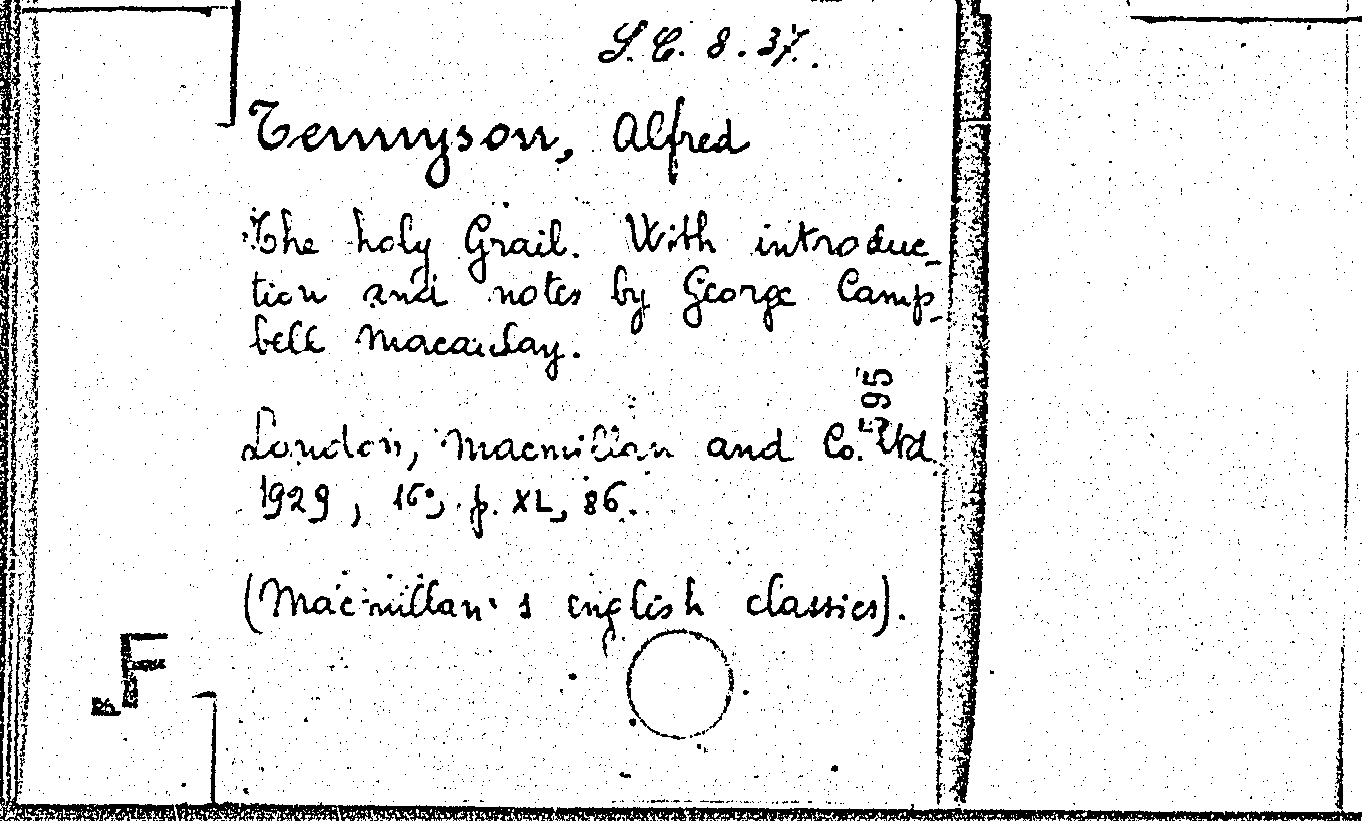 S.C. 8.37.
Tennyson, Alfred
The holy Grail. With introduc-
tion and notes by George Camp-
bell Macaulay.
95
London, Macmillan and Co. Ltd.
1929, 16°, p. XL, 86.
(Macmillan's english classics).
F